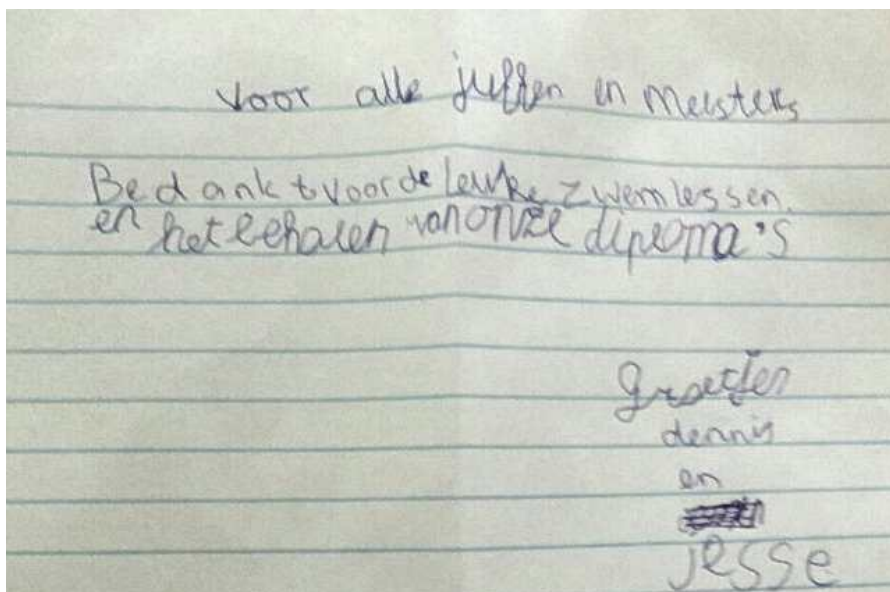 voor alle juffen en meesters
Bedankt voor de leuke zwemlessen.
en het behalen van onze diploma's
groetjes
dennis
en
jesse